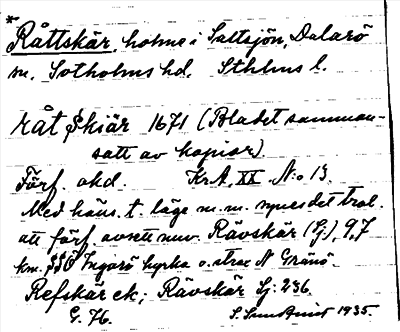 *
Råttskär, holme i Saltsjön, Dalarö
sn. Sotholms hd. Sthlms l.
råt Skiär 1671 (Bladet samman-
satt av kopior)
Förf. okd. KrA, XX No 13.
Med häns. t. läge m.m. synes det trol.
att förf. avsett nuv. Rävskär (G.), 9,7
km. SSÖ Ingarö kyrka o. strax N Gränö.
Refskär ek; Rävskär Sj: 236.
G. 76. 1935.